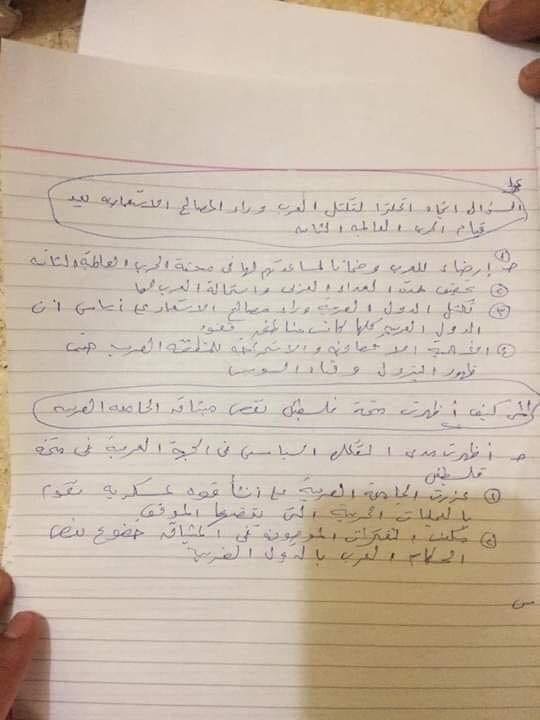 السؤال اتجاه انجلترا لتكتل العرب وراء المصالح الاستعمارية بعد
قيام الحرب العالمية الثانية
ج ① إرضاء للعرب وضمانا لمساعدتهم لها في محنة الحرب العالمية الثانية
② تخفيف حدة العداء العربى واستمالة العرب لها
③ تكتل الدول العربية وراء مصالح الاستعمار على أساس ان
الدول العربية كلها كانت مناطق نفوذ
④ الأهمية الاقتصادية والاستراتيجية للمنطقة العربية حيث
ظهور البترول وقناة السويس
كيف أظهرت محنة فلسطين نقص ميثاق الجامعة العربية
ج أظهرت مدى التفكك السياسي فى الجبهة العربية فى محنة
فلسطين
① عجزت الجامعة العربية على إنشاء قوة عسكرية تقوم
بالعمليات الحربية التى يقتضيها الموقف
② مكنت الثغرات الموجودة في الميثاق خضوع بعض
الحكام العرب بالدول الغربية
س